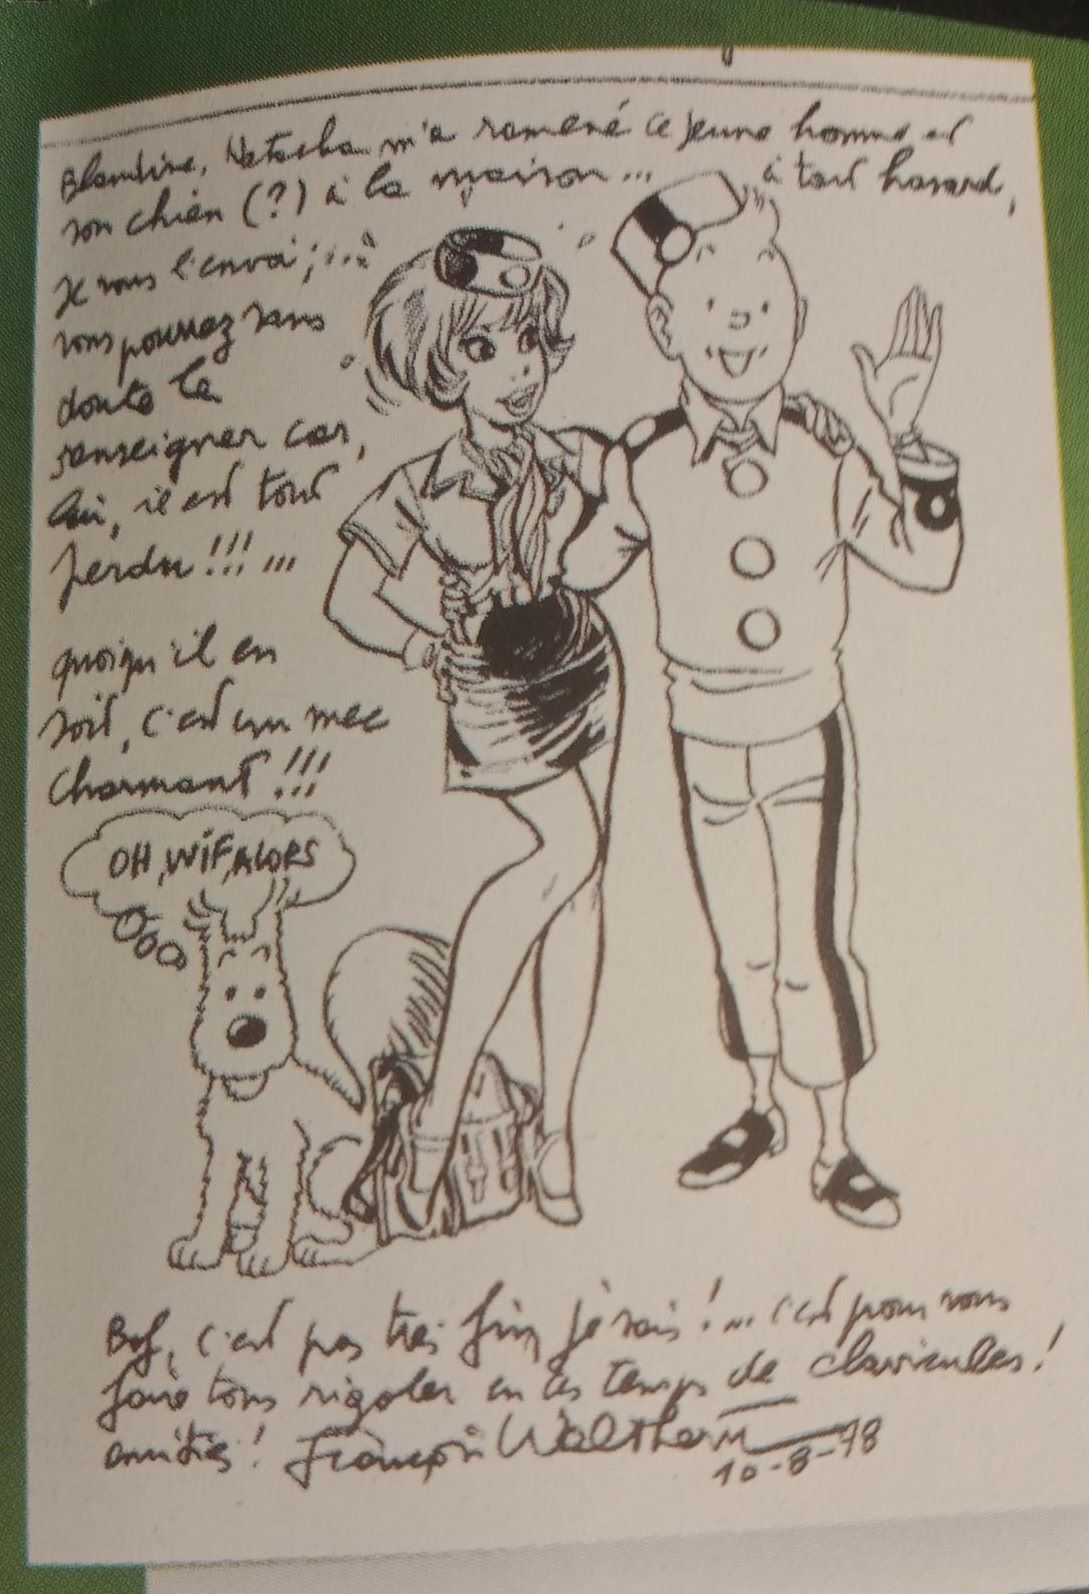 Blandine, Natacha m'a ramené ce jeune homme et
son chien (?) à la maison... à tout hasard,
je vous l'envoi;...
vous pourrez sans
doute le
renseigner car,
lui, il est tout
perdu!!!...
quoiqu'il en
soit, c'est un mec
charmant!!!
OH, WIF, ALORS
Bof, c'est pas très fin, je sais!... c'est pour vous
faire tous rigoler en ces temps de clavicules!
amitiés! François Walthery
10-8-78